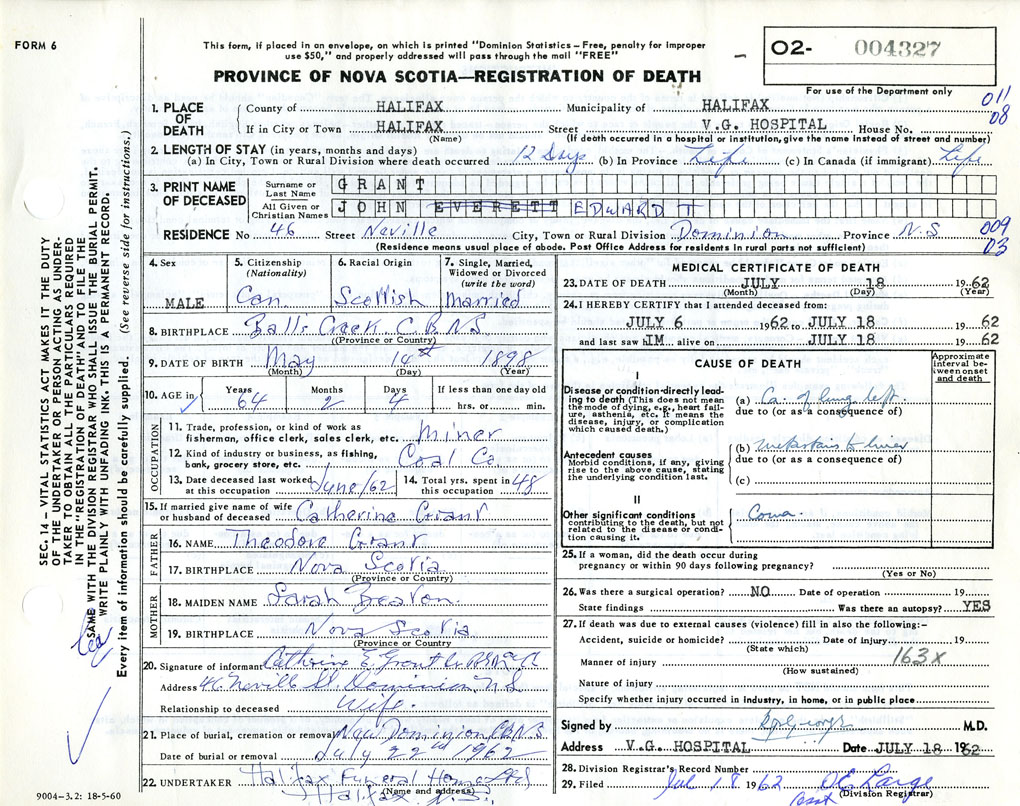 FORM 6
This form, if placed in an envelope, on which is printed "Dominion Statistics – Free, penalty for improper
use $50," and properly addressed will pass through the mail "FREE"
PROVINCE OF NOVA SCOTIA—REGISTRATION OF DEATH
O2- 004327
For use of the Department only
011
08
1. PLACE OF DEATH
County of HALIFAX Municipality of HALIFAX
If in City or Town HALIFAX Street V.G. HOSPITAL House No.
(Name) (If death occurred in a hospital or institution, give the name instead of street and number)
2. LENGTH OF STAY (in years, months and days)
(a) In City, Town or Rural Division where death occurred 12 Days (b) In Province Life (c) In Canada (if immigrant) Life
3. PRINT NAME OF DECEASED
Surname or Last Name GRANT
All Given or Christian Names JOHN EVERETT EDWARD T
RESIDENCE No 46 Street Neville City, Town or Rural Division Dominion Province N.S
009
03
(Residence means usual place of abode. Post Office Address for residents in rural parts not sufficient)
4. Sex MALE
5. Citizenship (Nationality) Can
6. Racial Origin Scottish
7. Single, Married, Widowed or Divorced (write the word) Married
8. BIRTHPLACE Balls Creek C.B N.S
(Province or Country)
9. DATE OF BIRTH May 14th 1898
(Month) (Day) (Year)
10. AGE in Years 64 Months 2 Days 4 If less than one day old hrs. or min.
OCCUPATION
11. Trade, profession, or kind of work as fisherman, office clerk, sales clerk, etc. Miner
12. Kind of industry or business, as fishing, bank, grocery store, etc. Coal Co.
13. Date deceased last worked at this occupation June/62 14. Total yrs. spent in this occupation 48
15. If married give name of wife or husband of deceased Catherine Grant
FATHER
16. NAME Theodore Grant
17. BIRTHPLACE Nova Scotia
(Province or Country)
MOTHER
18. MAIDEN NAME Sarah Beaton.
19. BIRTHPLACE Nova Scotia
(Province or Country
20. Signature of informant Catherine E Grant
Address 46 Neville St Dominion N S
Relationship to deceased Wife.
21. Place of burial, cremation or removal New Dominion C.B. N.S.
Date of burial or removal July 22nd 1962
22. UNDERTAKER Halifax Funeral Home Ltd
Halifax N.S.
(Name and address)
9004-3.2: 18-5-60
SEC. 14 – VITAL STATISTICS ACT MAKES IT THE DUTY
OF THE UNDERTAKER OR PERSON ACTING AS UNDER-
TAKER TO OBTAIN ALL THE PARTICULARS REQUIRED
IN THE "REGISTRATION OF DEATH" AND TO FILE THE
SAME WITH THE DIVISION REGISTRAR WHO SHALL ISSUE THE BURIAL PERMIT.
WRITE PLAINLY WITH UNFADING INK. THIS IS A PERMANENT RECORD.
Every item of information should be carefully supplied. (See reverse side for instructions.)
MEDICAL CERTIFICATE OF DEATH
23. DATE OF DEATH JULY 18 1962
(Month) (Day) (Year)
24. I HEREBY CERTIFY that I attended deceased from:
JULY 6 1962 to JULY 18 1962
and last saw IM alive on JULY 18 1962
CAUSE OF DEATH
Approximate interval between onset and death
I
Disease or condition directly leading to death (This does not mean the mode of dying, e.g., heart failure, asthenia, etc. It means the disease, injury, or complication which caused death.)
(a) Ca. of lung left.
due to (or as a consequence of)
Antecedent causes
Morbid conditions, if any, giving rise to the above cause, stating the underlying condition last.
(b) metastasis to liver
due to (or as a consequence of)
(c)
II
Other significant conditions contributing to the death, but not related to the disease or condition causing it.
Coma.
25. If a woman, did the death occur during pregnancy or within 90 days following pregnancy?
(Yes or No)
26. Was there a surgical operation? NO Date of operation 19
State findings Was there an autopsy? YES
27. If death was due to external causes (violence) fill in also the following:–
Accident, suicide or homicide? Date of injury 19
(State which)
163x
Manner of injury
(How sustained)
Nature of injury
Specify whether injury occurred in industry, in home, or in public place
Signed by M.D.
Address V.G. HOSPITAL Date JULY 18 1962
28. Division Registrar's Record Number
29. Filed Jul 18 1962
(Division Registrar)